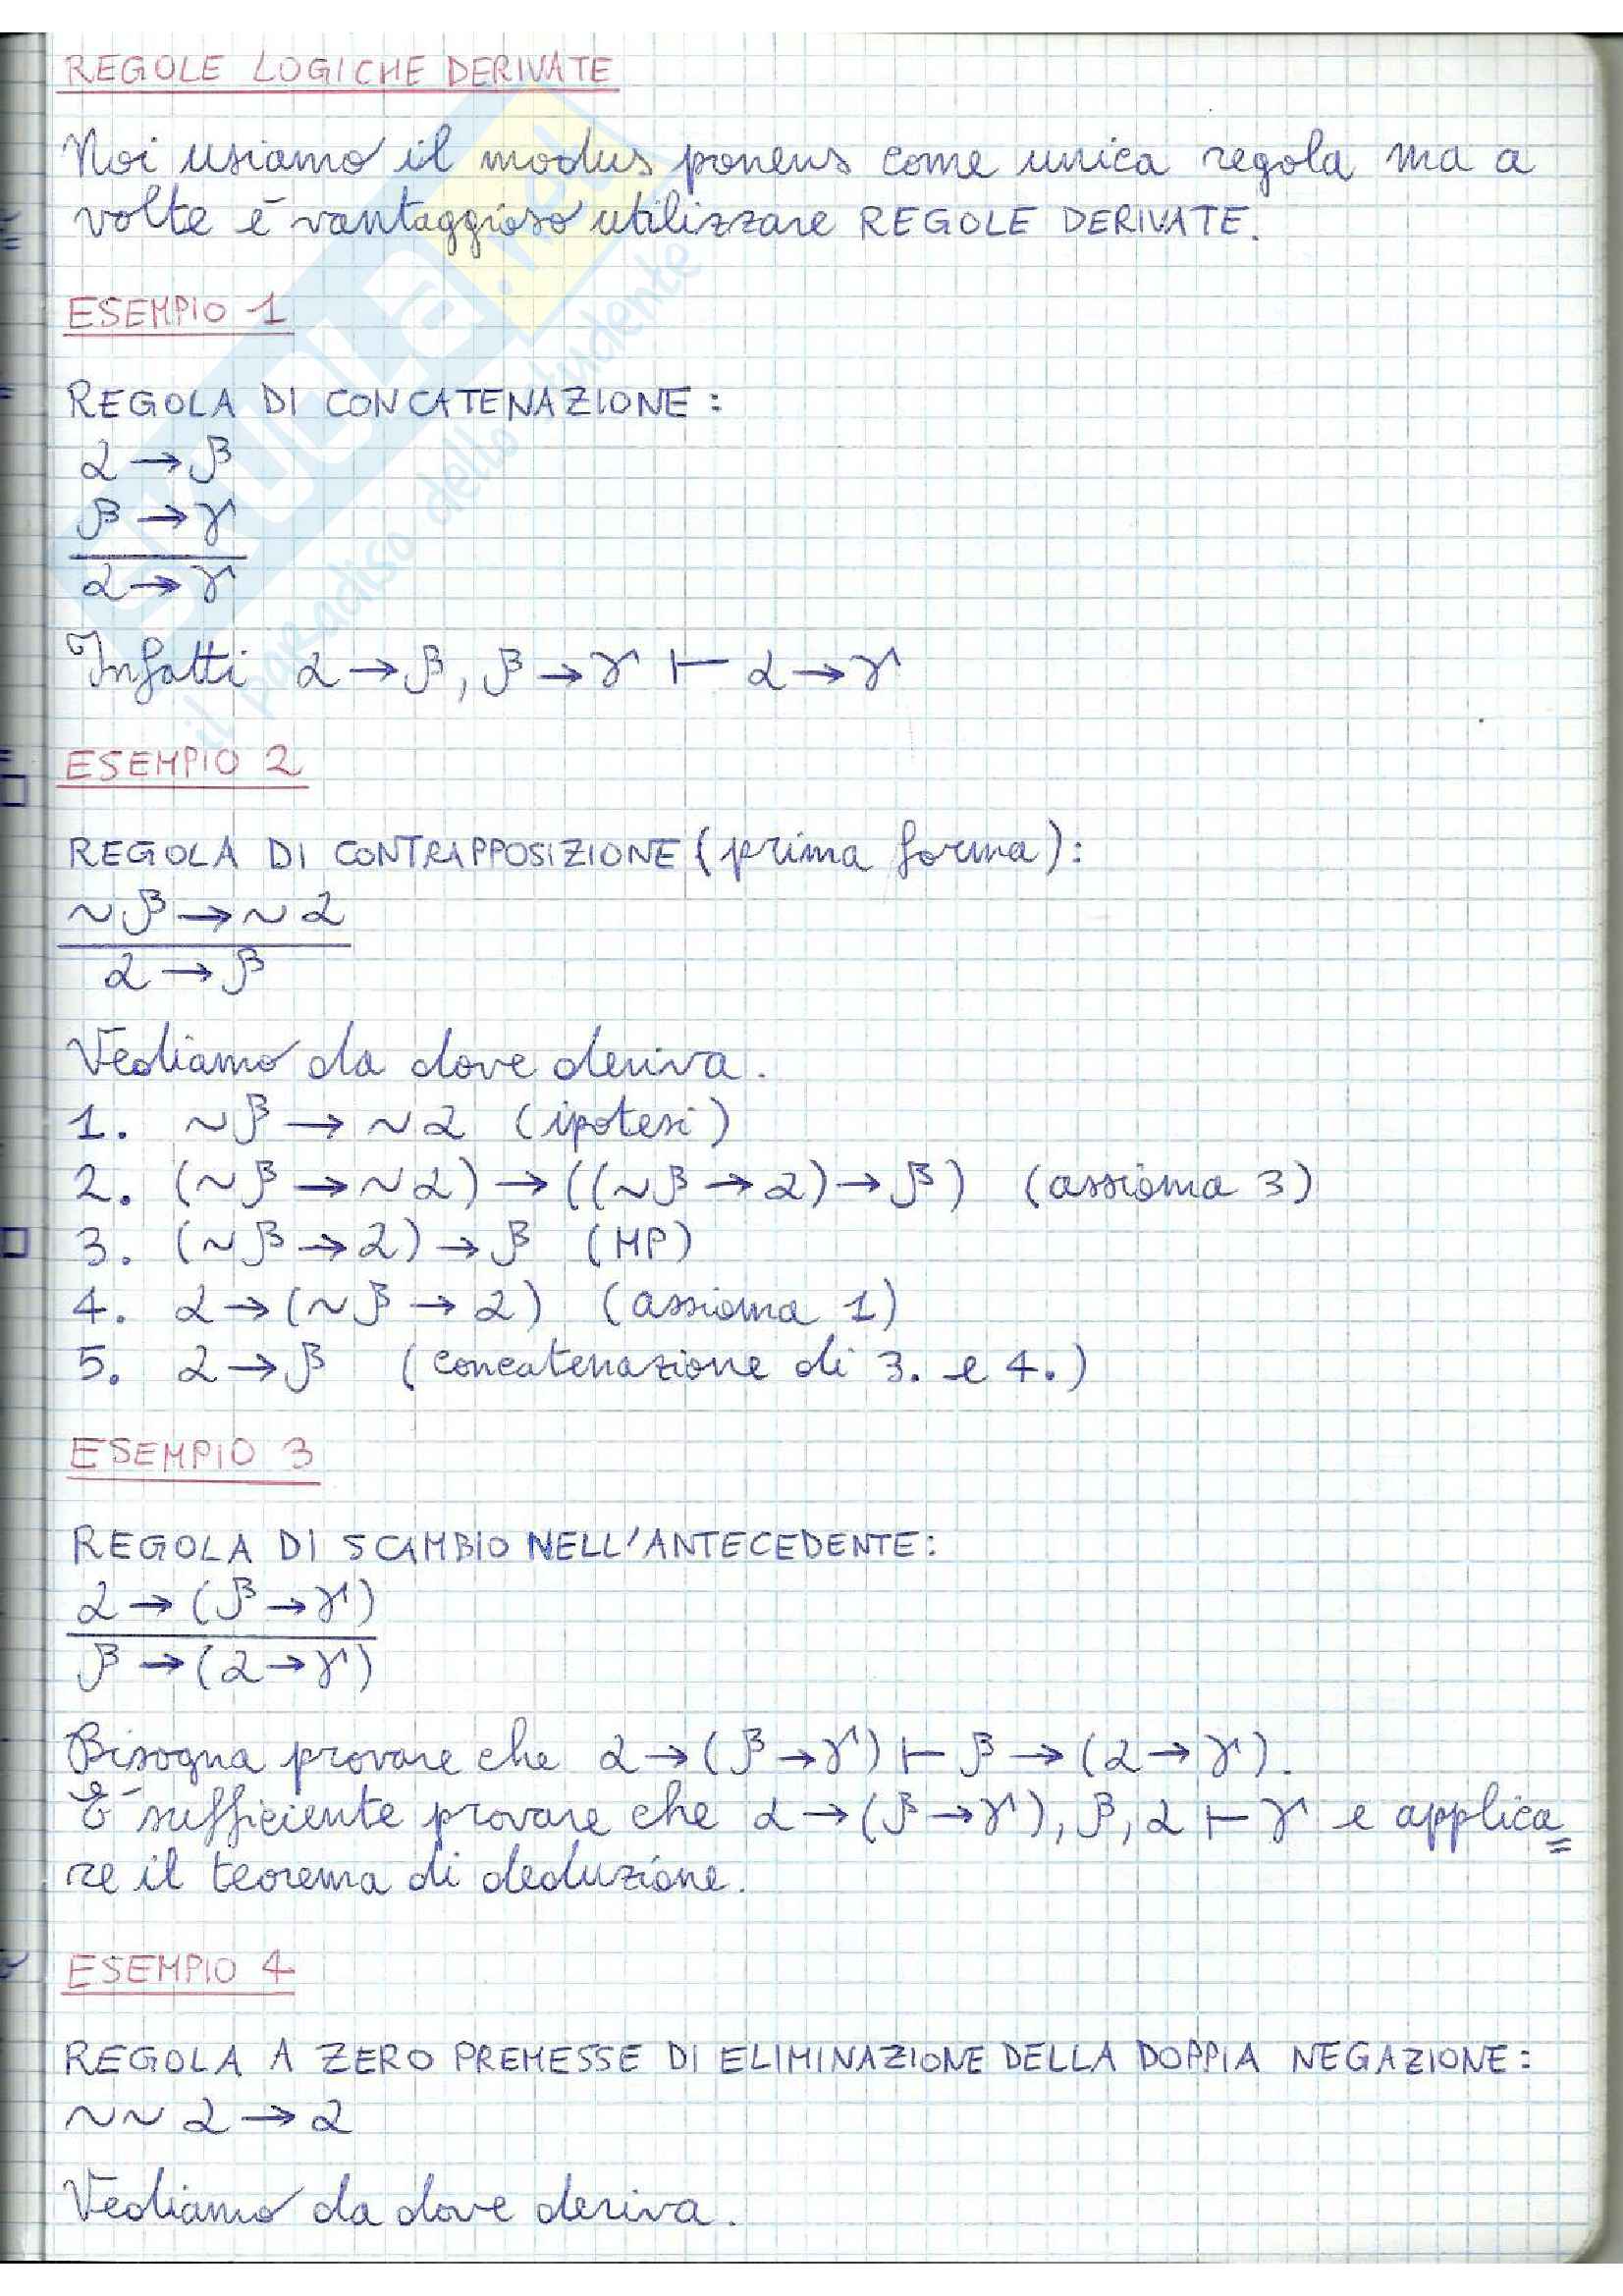 REGOLE LOGICHE DERIVATE
Noi usiamo il modus ponens come unica regola ma a
volte è vantaggioso utilizzare REGOLE DERIVATE.
ESEMPIO 1
REGOLA DI CONCATENAZIONE:
α → β
β → γ
α → γ
Infatti α → β, β → γ ⊢ α → γ
ESEMPIO 2
REGOLA DI CONTRAPPOSIZIONE (prima forma):
~β → ~α
α → β
Vediamo da dove deriva.
1. ~β → ~α (ipotesi)
2. (~β → ~α) → ((~β → α) → β) (assioma 3)
3. (~β → α) → β (MP)
4. α → (~β → α) (assioma 1)
5. α → β (concatenazione di 3. e 4.)
ESEMPIO 3
REGOLA DI SCAMBIO NELL'ANTECEDENTE:
α → (β → γ)
β → (α → γ)
Bisogna provare che α → (β → γ) ⊢ β → (α → γ).
È sufficiente provare che α → (β → γ), β, α ⊢ γ e applica=
re il teorema di deduzione.
ESEMPIO 4
REGOLA A ZERO PREMESSE DI ELIMINAZIONE DELLA DOPPIA NEGAZIONE:
~~α → α
Vediamo da dove deriva.
SKUOLA.net
il paradiso dello studente